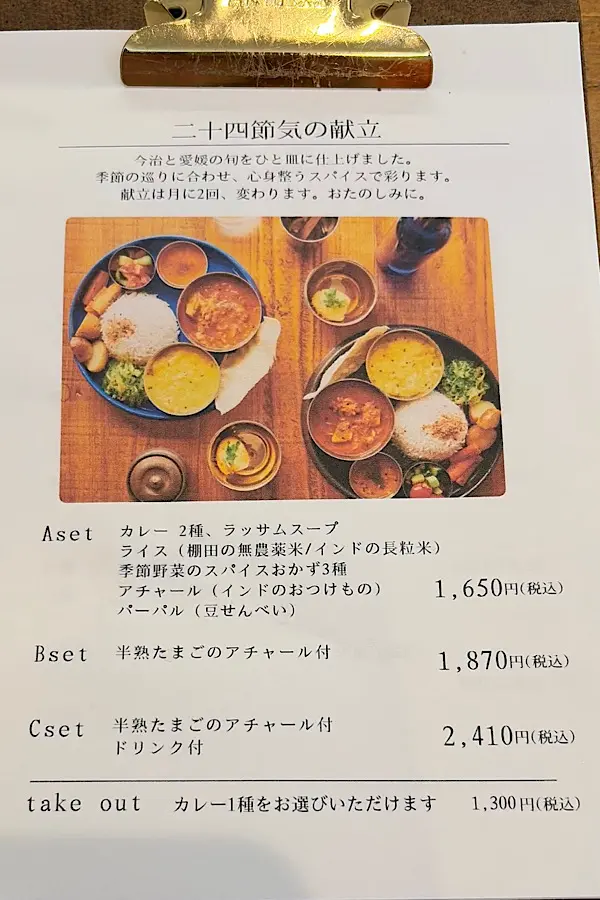 二十四節気の献立
今治と愛媛の旬をひと皿に仕上げました。
季節の巡りに合わせ、心身整うスパイスで彩ります。
献立は月に2回、変わります。おたのしみに。
Aset カレー 2種、ラッサムスープ
ライス（棚田の無農薬米/インドの長粒米）
季節野菜のスパイスおかず3種
アチャール（インドのおつけもの） 1,650円(税込)
パーパル（豆せんべい）
Bset 半熟たまごのアチャール付 1,870円(税込)
Cset 半熟たまごのアチャール付 2,410円(税込)
ドリンク付
take out カレー1種をお選びいただけます 1,300円(税込)